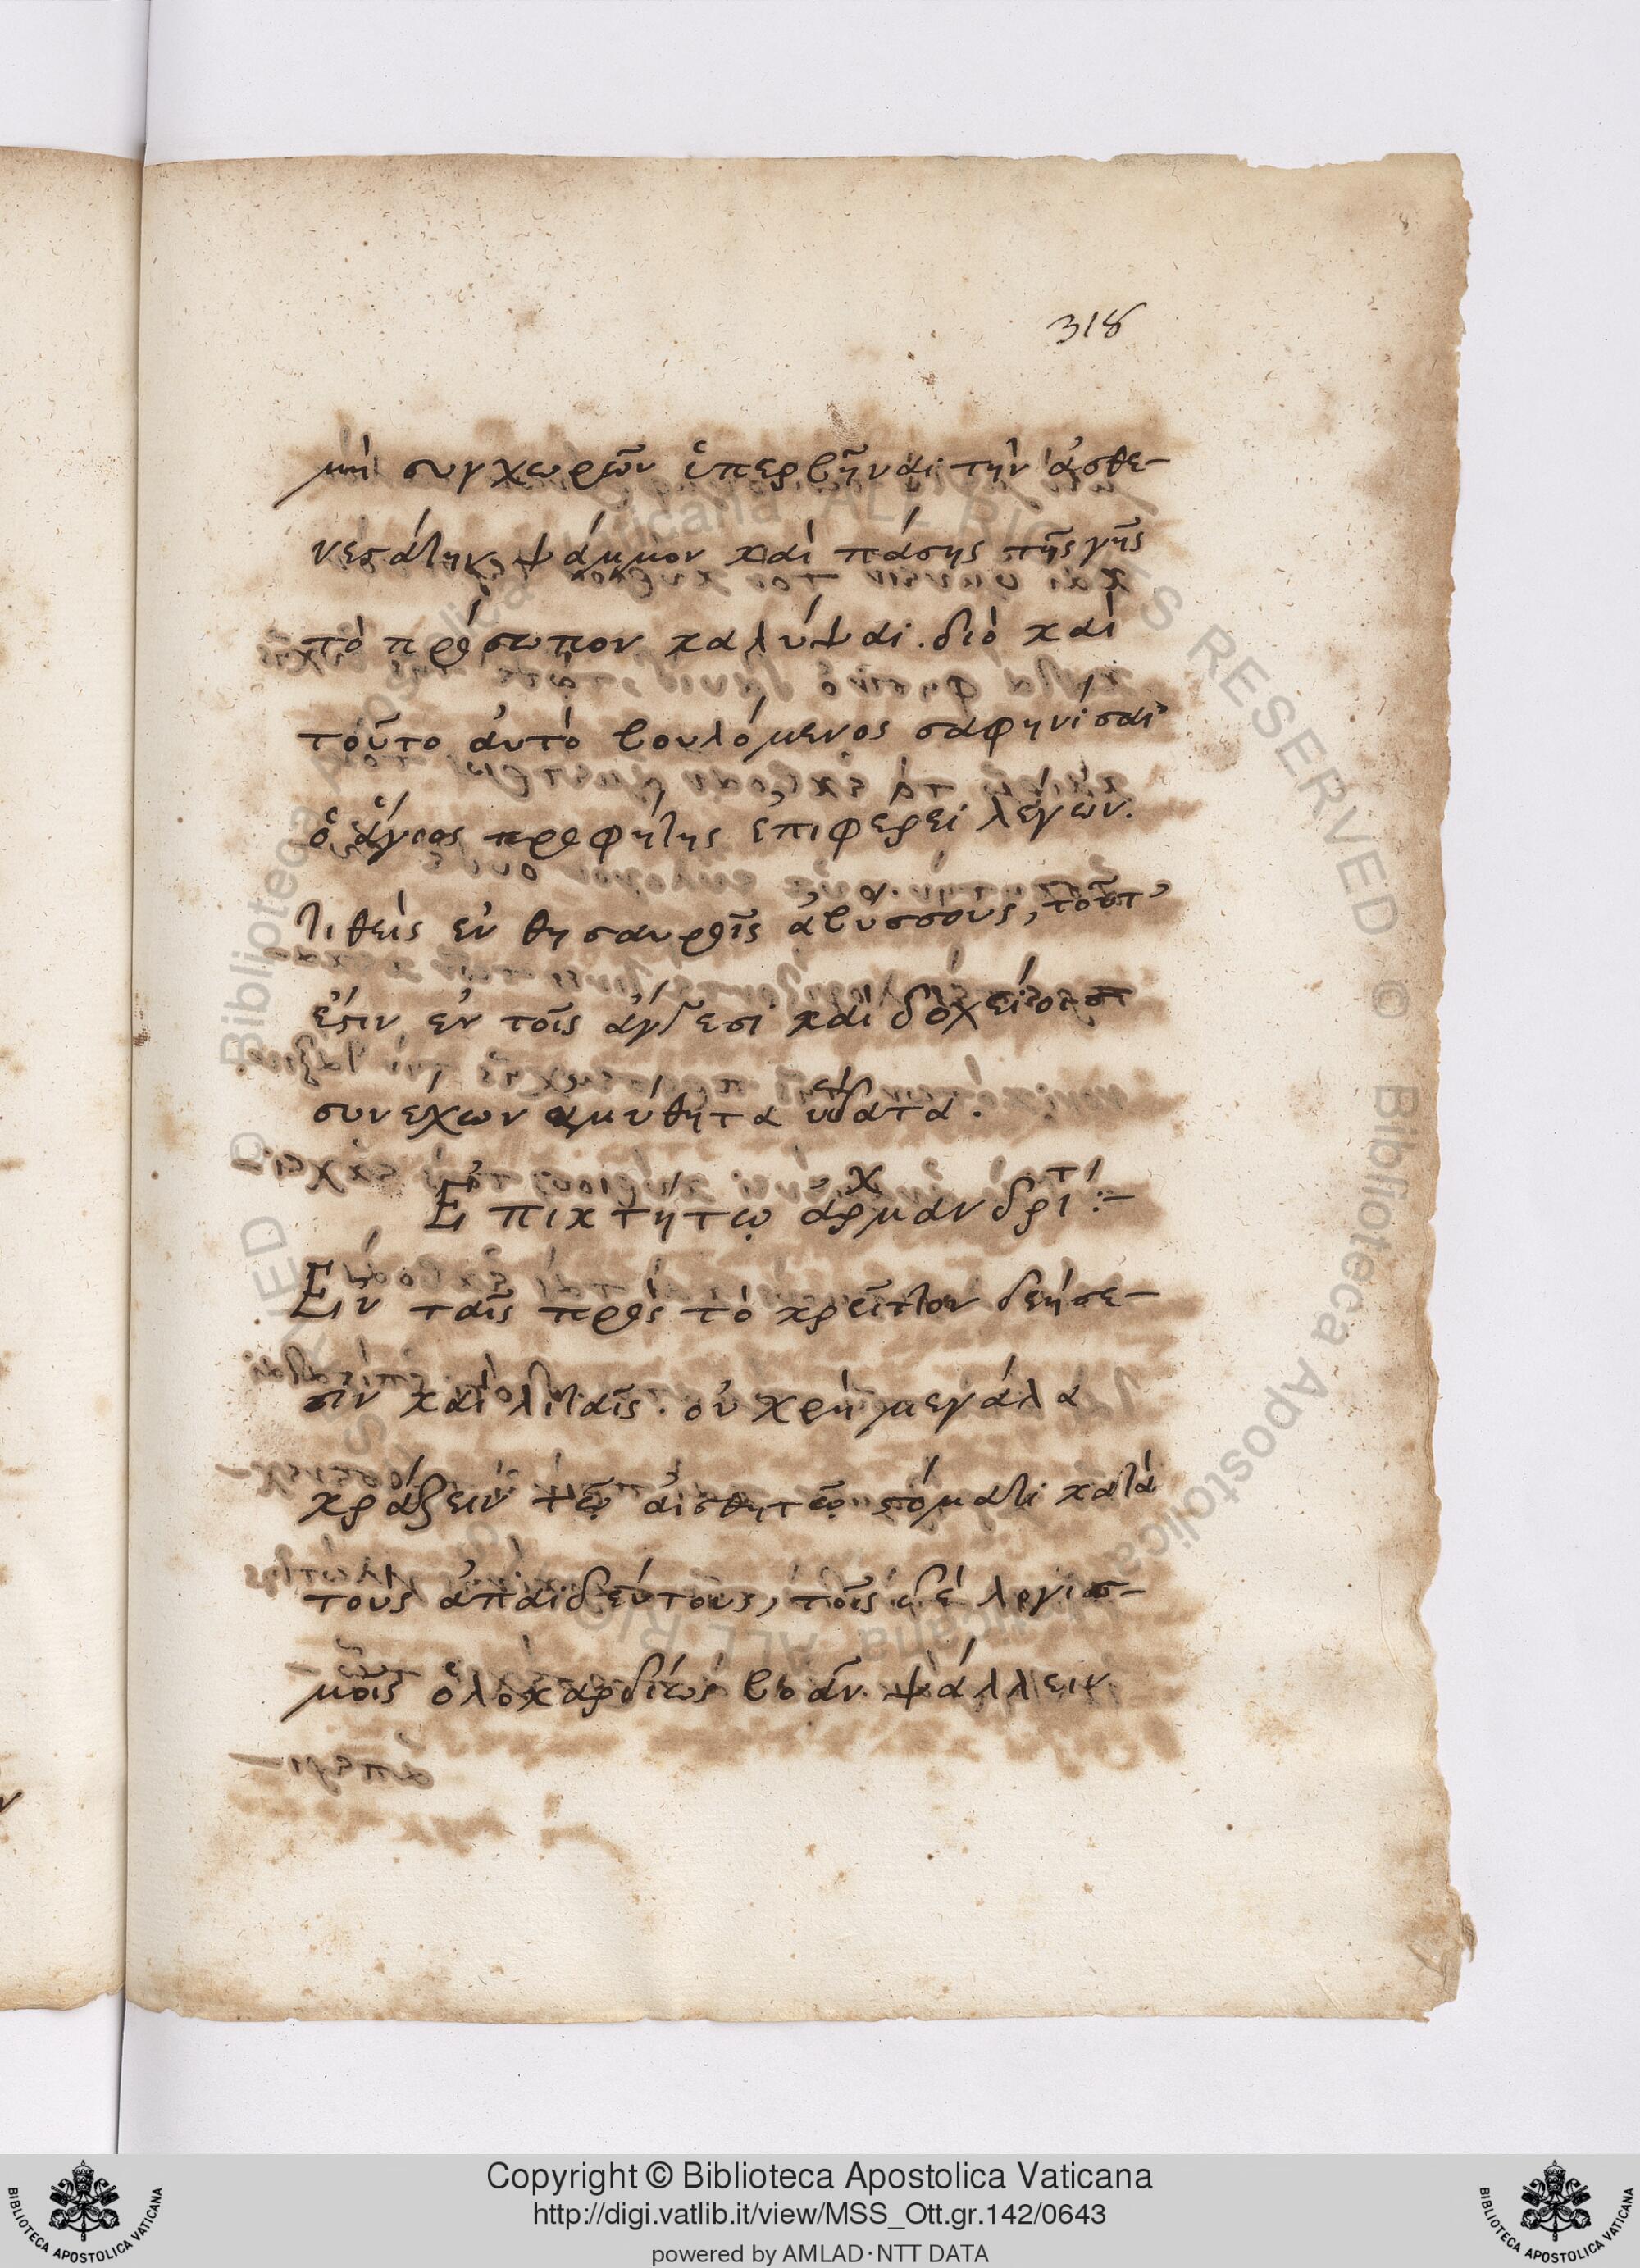 318
μὴ συγχωρῶν ὑπερβῆναι τὴν ἀσθε-
νεστάτην ψάμμον καὶ πάσης τῆς γῆς
τὸ πρόσωπον καλύψαι. διὸ καὶ
τοῦτο αὐτὸ βουλόμενος σαφηνίσαι
ὁ ἅγιος προφήτης ἐπιφέρει λέγων.
τιθεὶς ἐν θησαυροῖς ἀβύσσους, τουτ
έστιν ἐν τοῖς ἄγγεσι καὶ δοχείοις
συνέχων ἀμύθητα ὕδατα.
Ἐπικτήτῳ ἀρχμανδρίτ :-
Ἐν ταῖς πρὸς τὸ κρεῖττον δεήσε-
σιν καὶ λιταῖς. οὐ χρὴ μεγάλα
κράζειν τῷ αἰσθητῷ στόματι κατὰ
τοὺς ἀπαιδεύτους, τοῖς δὲ λογισ-
μοῖς ὁλοκαρδίως βοᾶν. ψάλλειν
Copyright © Biblioteca Apostolica Vaticana
http://digi.vatlib.it/view/MSS_Ott.gr.142/0643
powered by AMLAD·NTT DATA
BIBLIOTECA APOSTOLICA VATICANA
BIBLIOTECA APOSTOLICA VATICANA